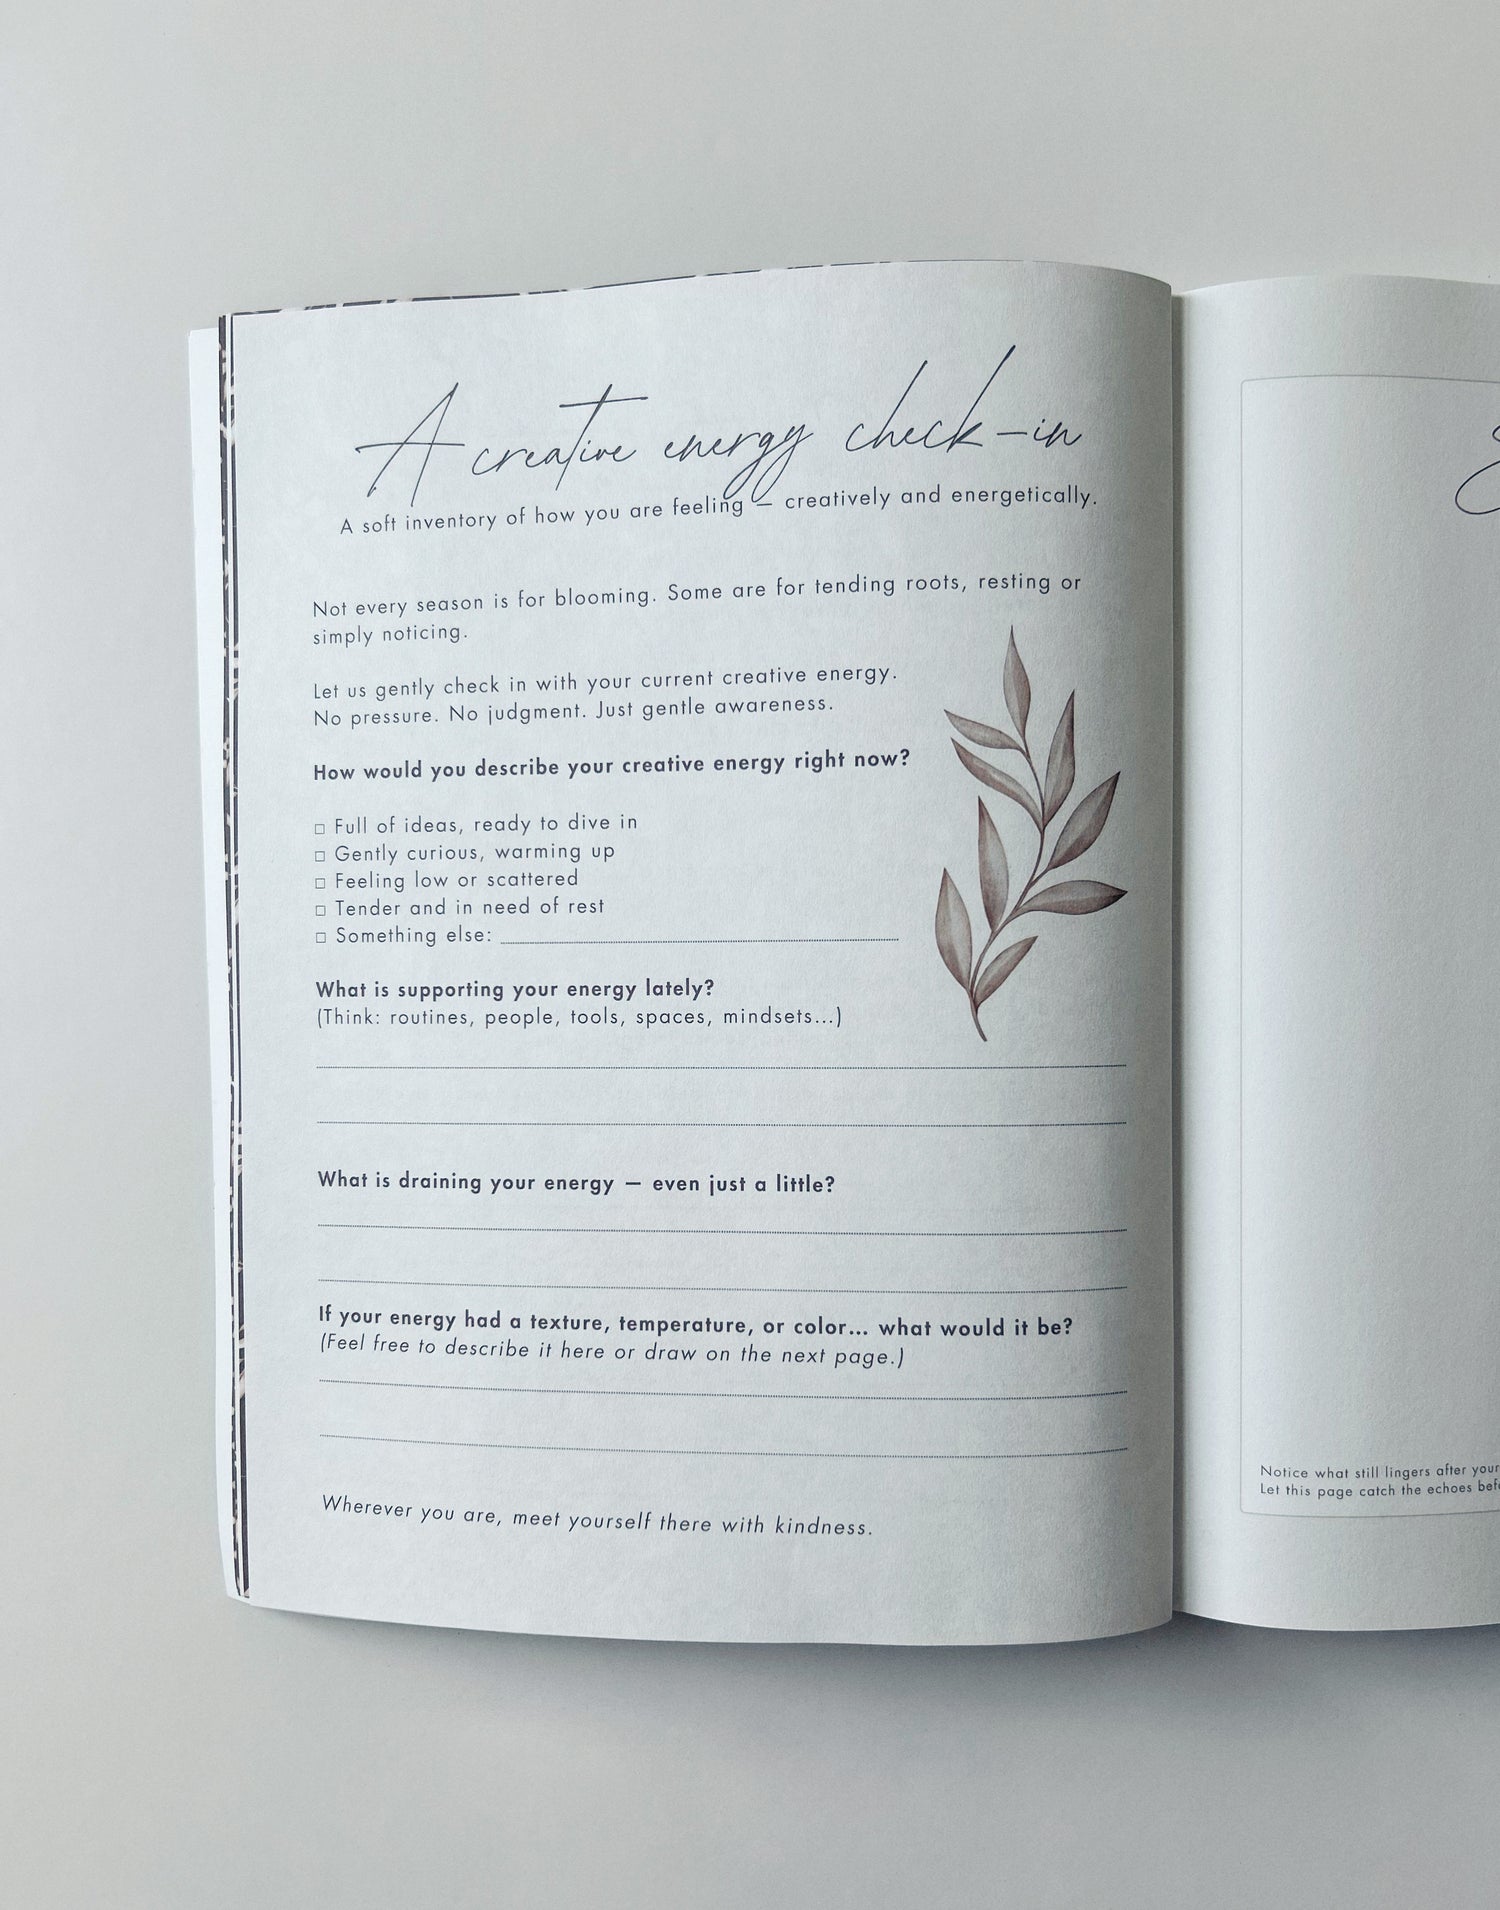 A creative energy check-in
A soft inventory of how you are feeling — creatively and energetically.
Not every season is for blooming. Some are for tending roots, resting or
simply noticing.
Let us gently check in with your current creative energy.
No pressure. No judgment. Just gentle awareness.
How would you describe your creative energy right now?
□ Full of ideas, ready to dive in
□ Gently curious, warming up
□ Feeling low or scattered
□ Tender and in need of rest
□ Something else:
What is supporting your energy lately?
(Think: routines, people, tools, spaces, mindsets...)
What is draining your energy — even just a little?
If your energy had a texture, temperature, or color... what would it be?
(Feel free to describe it here or draw on the next page.)
Wherever you are, meet yourself there with kindness.
Notice what still lingers after your
Let this page catch the echoes